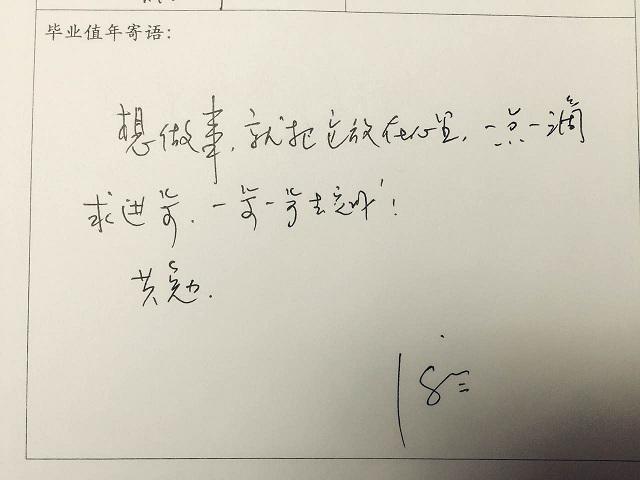 毕业值年寄语:
想做事，就把它放在心里，一点一滴
求进步，一步一步去完成！
共勉.